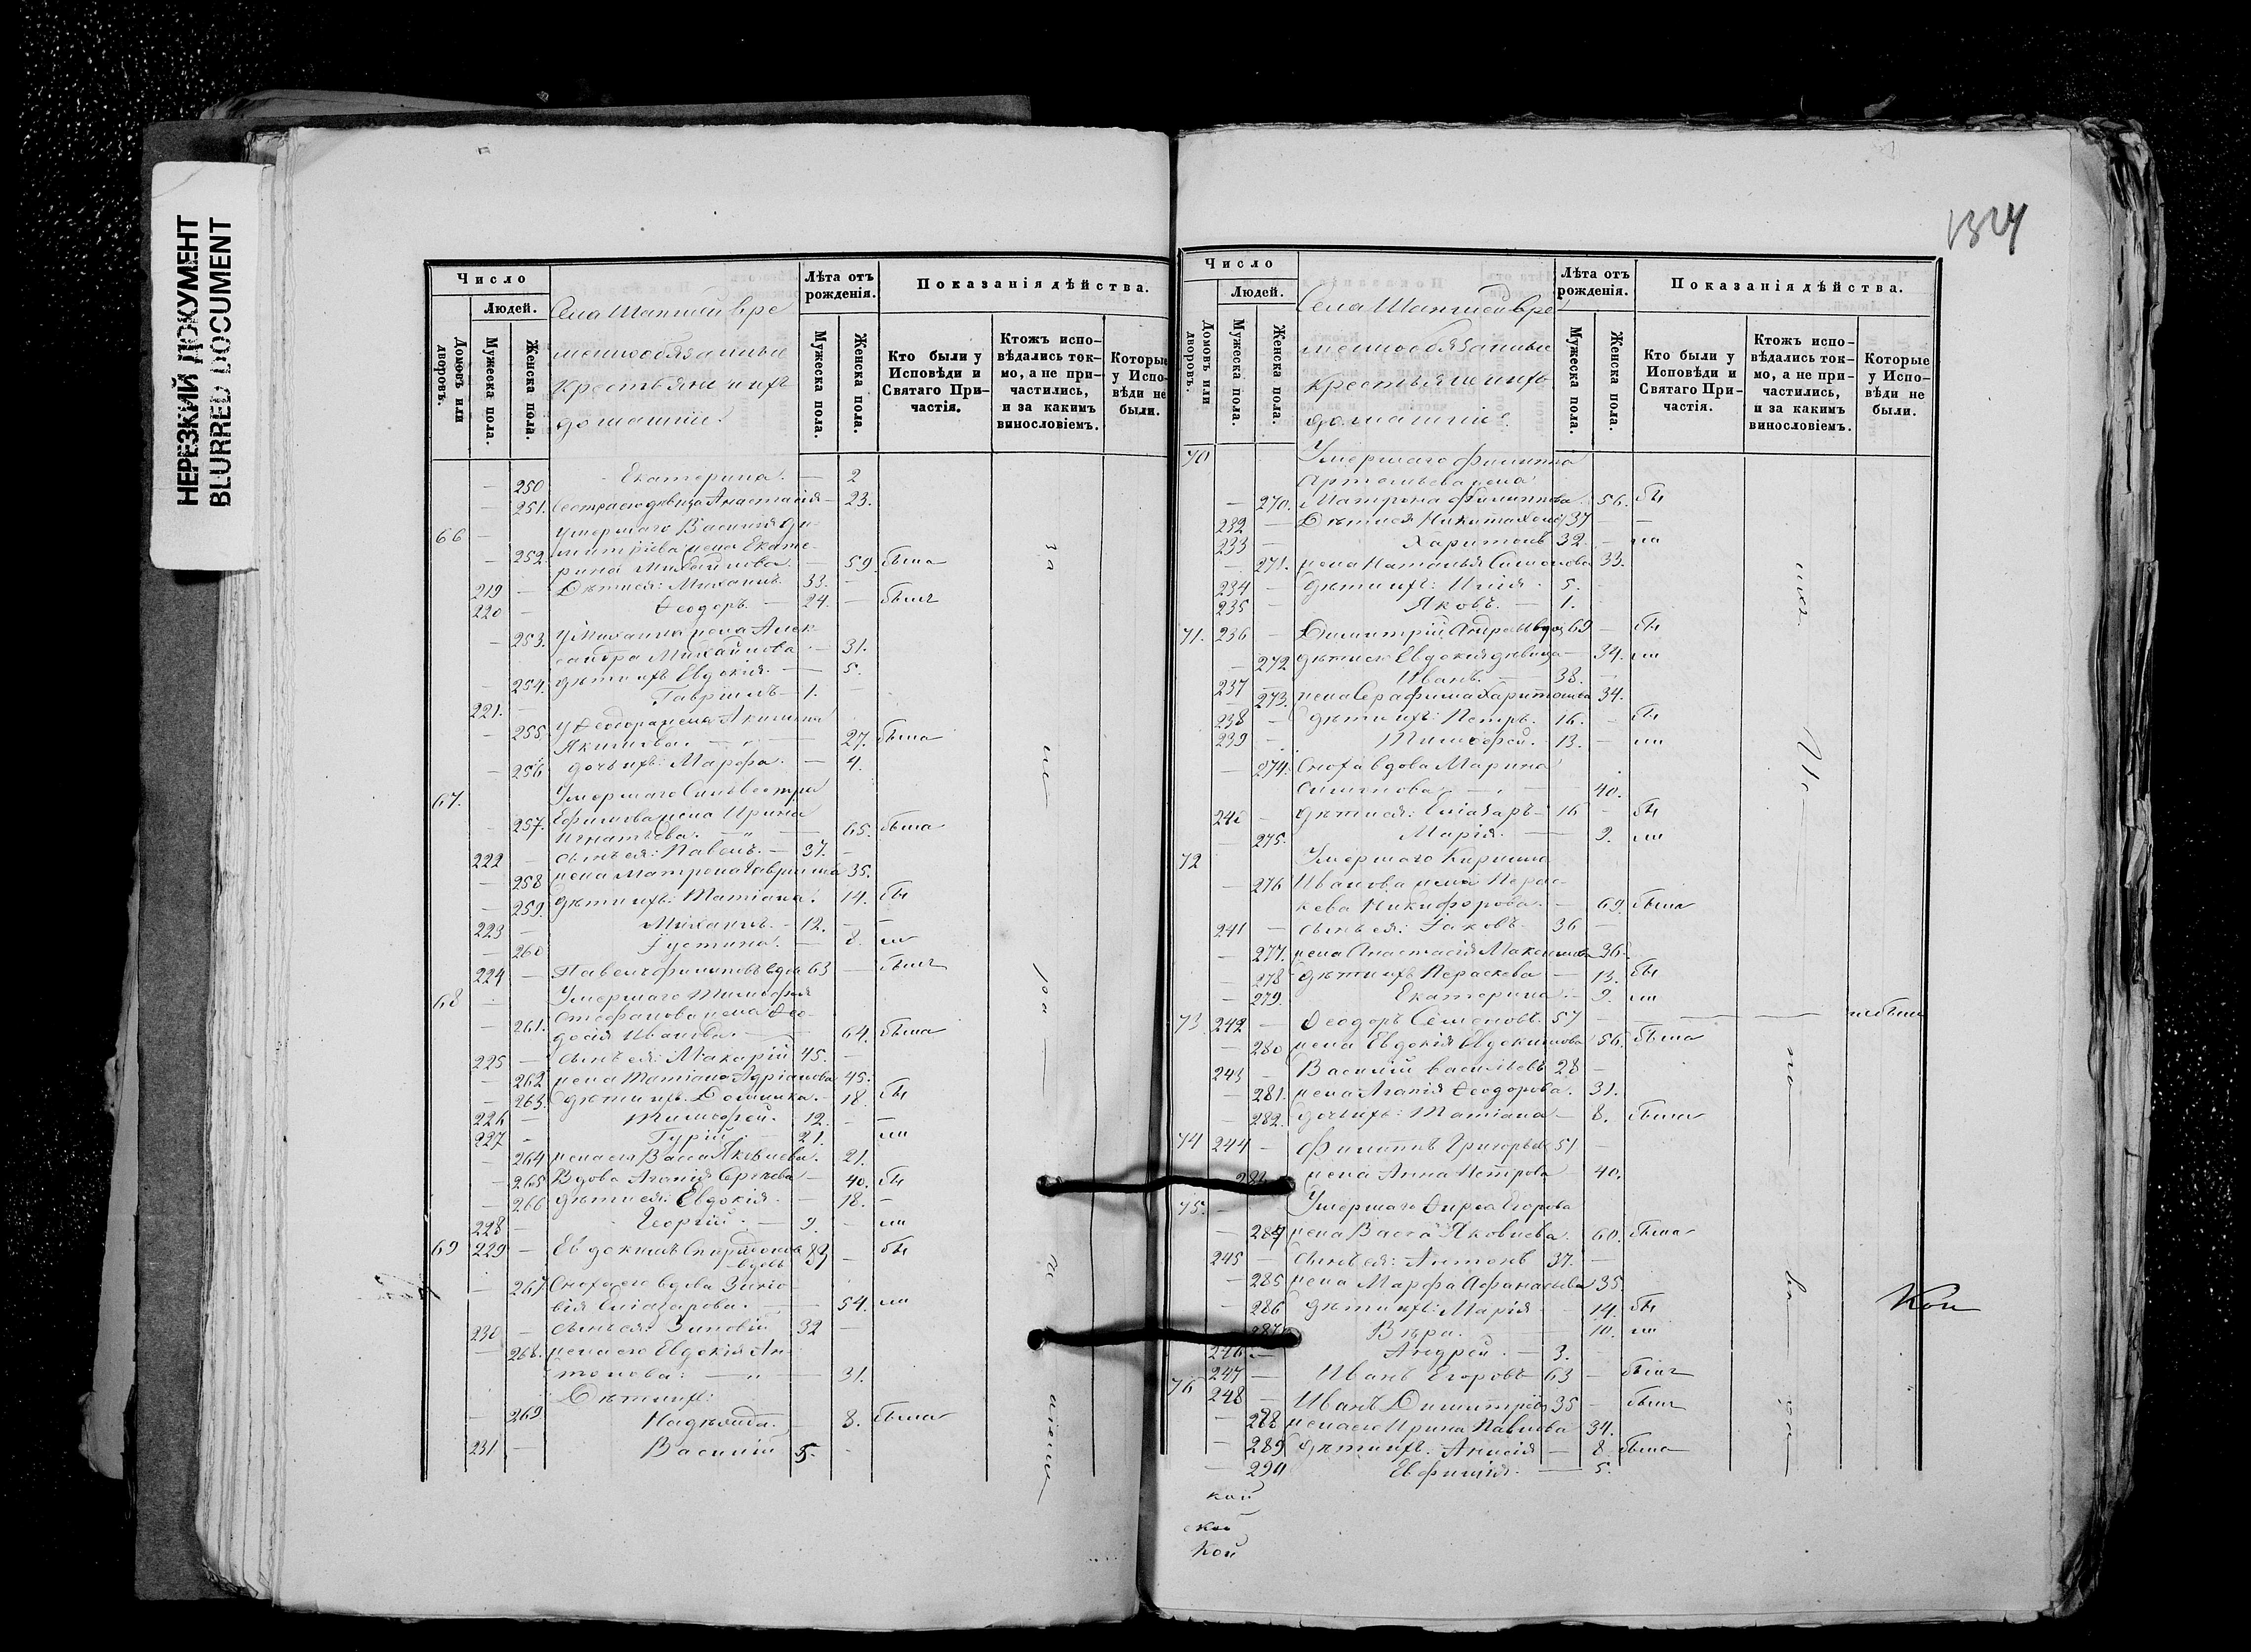 НЕРЕЗКИЙ ДОКУМЕНТ
BLURRED DOCUMENT
Число
Людей.
Домовъ или дворовъ.
Мужеска пола.
Женска пола.
Села временнообязанные
крестьяне и ихъ
домашніе.
Лѣта отъ рожденія.
Мужеска пола.
Женска пола.
Показанія дѣйства.
Кто были у Исповѣди и Святаго Причастія.
Ктожъ исповѣдались токмо, а не причастились, и за какимъ винословіемъ.
Которые у Исповѣди не были.
250 Екатерина. — 2
251. Сестра его дѣвица Анастасія — 23.
66 Умершаго Василія Ди-
252. митріева жена Екате-
рина Михайлова. — 59 была
219 — Дѣти ея: Михаилъ 33. —
220 — Ѳеодоръ. — 24. — были
253. У Михаила жена Алек-
сандра Михайлова — 31.
254. дѣти ихъ Евдокія. — 5.
221. — Гавріилъ — 1. —
255. У Ѳеодора жена Акилина
Якимова. — 27. была
256 дочь ихъ: Марѳа. — 4.
67. Умершаго Сильвестра
257. Ефимова жена Ирина
Игнатьева. — 65. была
222 — сынъ ея: Павелъ. — 37. —
258 жена Матрона Гаврилова 35.
259. дѣти ихъ: Татіана. 14. бы
223 — Михаилъ. — 12. —
260 Іустина. — 8. ли
224 — Павелъ Филиповъ вдов 63 — былъ
68 Умершаго Тимоѳея
261. Стефанова жена Ѳео-
досія Иванова. — 64. была
225 — сынъ ея: Макарій 45. —
262 жена Татіана Адріанова 45.
263. дѣти ихъ. Домника. — 18. бы
226 — Тимоѳей. 12. —
227 — Гурій 21. ли
264 жена его Васса Яковлева. 21.
265 Вдова Агапія Сергѣева — 40. бы
266 дѣти ея: Евдокія. — 18. —
228 — Георгій. — 9. — ли
69 229 — Евдокимъ Спиридоновъ 83 — бы
вдовъ
267. Сноха его вдова Зино-
вія Еліазарова. — 54. ли
230 — сынъ ея: Зиновій 32 —
268. жена его Евдокія Ан-
тонова: — 31.
Дѣти ихъ:
269 Надежда. — 8. была
231 — Василій 5. —
за
не
ра
и
Число
Людей.
Домовъ или дворовъ.
Мужеска пола.
Женска пола.
Села временнообязанные
крестьяне и ихъ
домашніе.
Лѣта отъ рожденія.
Мужеска пола.
Женска пола.
Показанія дѣйства.
Кто были у Исповѣди и Святаго Причастія.
Ктожъ исповѣдались токмо, а не причастились, и за какимъ винословіемъ.
Которые у Исповѣди не были.
70 Умершаго Филиппа
Артемьева жена
270. Матрона Филиппова 56. бы
232 — Дѣти ея Никита 37 —
233 — Харитонъ 32. — ли
271. жена Наталья Симонова 33.
234 — дѣти ихъ: Илія 5. —
235 — Яковъ. — 1. —
71. 236 — Димитрій Андреевъ вдов 69 — бы
272 дѣти его Евдокія дѣвица — 34. ли
237 — Иванъ. — 38. —
273. жена Серафима Харитонова 34.
238 — дѣти ихъ: Петръ. 16. — бы
239 — Тимоѳей. 13. — ли
274. Сноха вдова Марина
Симонова — 40.
240 — дѣти ея: Еліазаръ — 16 — бы
275. Марія. — 9. ли
72 Умершаго Кирилла
276 Иванова жена Перас-
кева Никифорова. — 69. была
241 — сынъ ея: Іаковъ. 36 —
277. жена Анастасія Максимова 36.
278 дѣти ихъ Параскева — 13. бы
279. Екатерина. — 9. ли
73 242 — Ѳеодоръ Семеновъ. 57 — не былъ
280 жена Евдокія Евдокимова 56. была
243 — Василій Васильевъ 28 —
281. жена Агапія Ѳеодорова. 31.
282. дочь ихъ: Татіана — 8. была
74 244 — Филиппъ Григорьевъ 51 —
жена Анна Петрова 40.
75. Умершаго Егорова
284 жена Васса Яковлева. 60. была
245 — сынъ ея: Антонъ 37. —
285 жена Марѳа Афанасьева 35.
286 дѣти ихъ: Марія — 14. бы
287 Вѣра. — 10. ли
246 — Андрей. — 3. —
247 — Иванъ Егоровъ 63 — былъ
76 248 — Иванъ Димитріевъ 35 — былъ
288 жена его Ирина Павлова 34.
289 дѣти ихъ. Анисія — 8 была
290 Евфимія. — 5.
ихъ
по
ва
кой
ской
кой